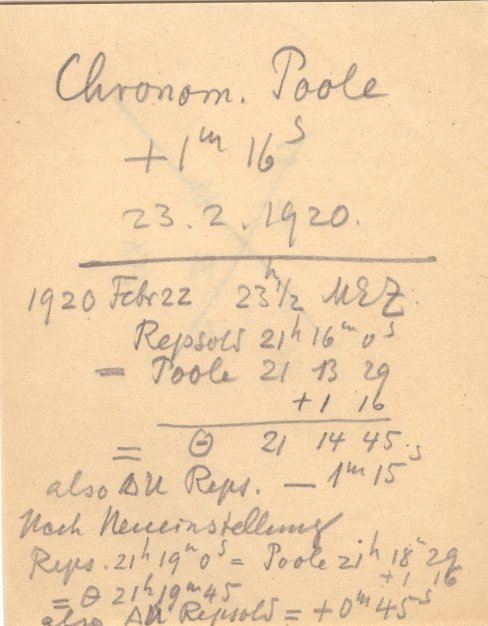 Chronom. Poole
+1ᵐ 16ˢ
23.2.1920.
1920 Febr 22 23ʰ½ MEZ.
Repsold 21ʰ 16ᵐ 0ˢ
= Poole 21 13 29
+1 16
= Θ 21 14 45.
also ΔU Reps. — 1ᵐ 15ˢ
Nach Neueinstellung
Reps. 21ʰ 19ᵐ 0ˢ = Poole 21ʰ 18ᵐ 29
+1 16
= Θ 21ʰ 19ᵐ 45
also ΔU Repsold = +0ᵐ 45ˢ